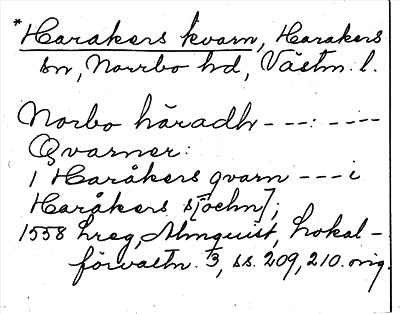 *Harakers kvarn, Harakers
sn, Norrbo hd, Västm. l.
Norbo häradh - - - : - - - -
Qvarner:
1 Haråkers qvarn - - - i
Haråkers s[ochn];
1558 hreg, Almquist, Lokal-
förvaltn. 3, ss. 209, 210. orig.